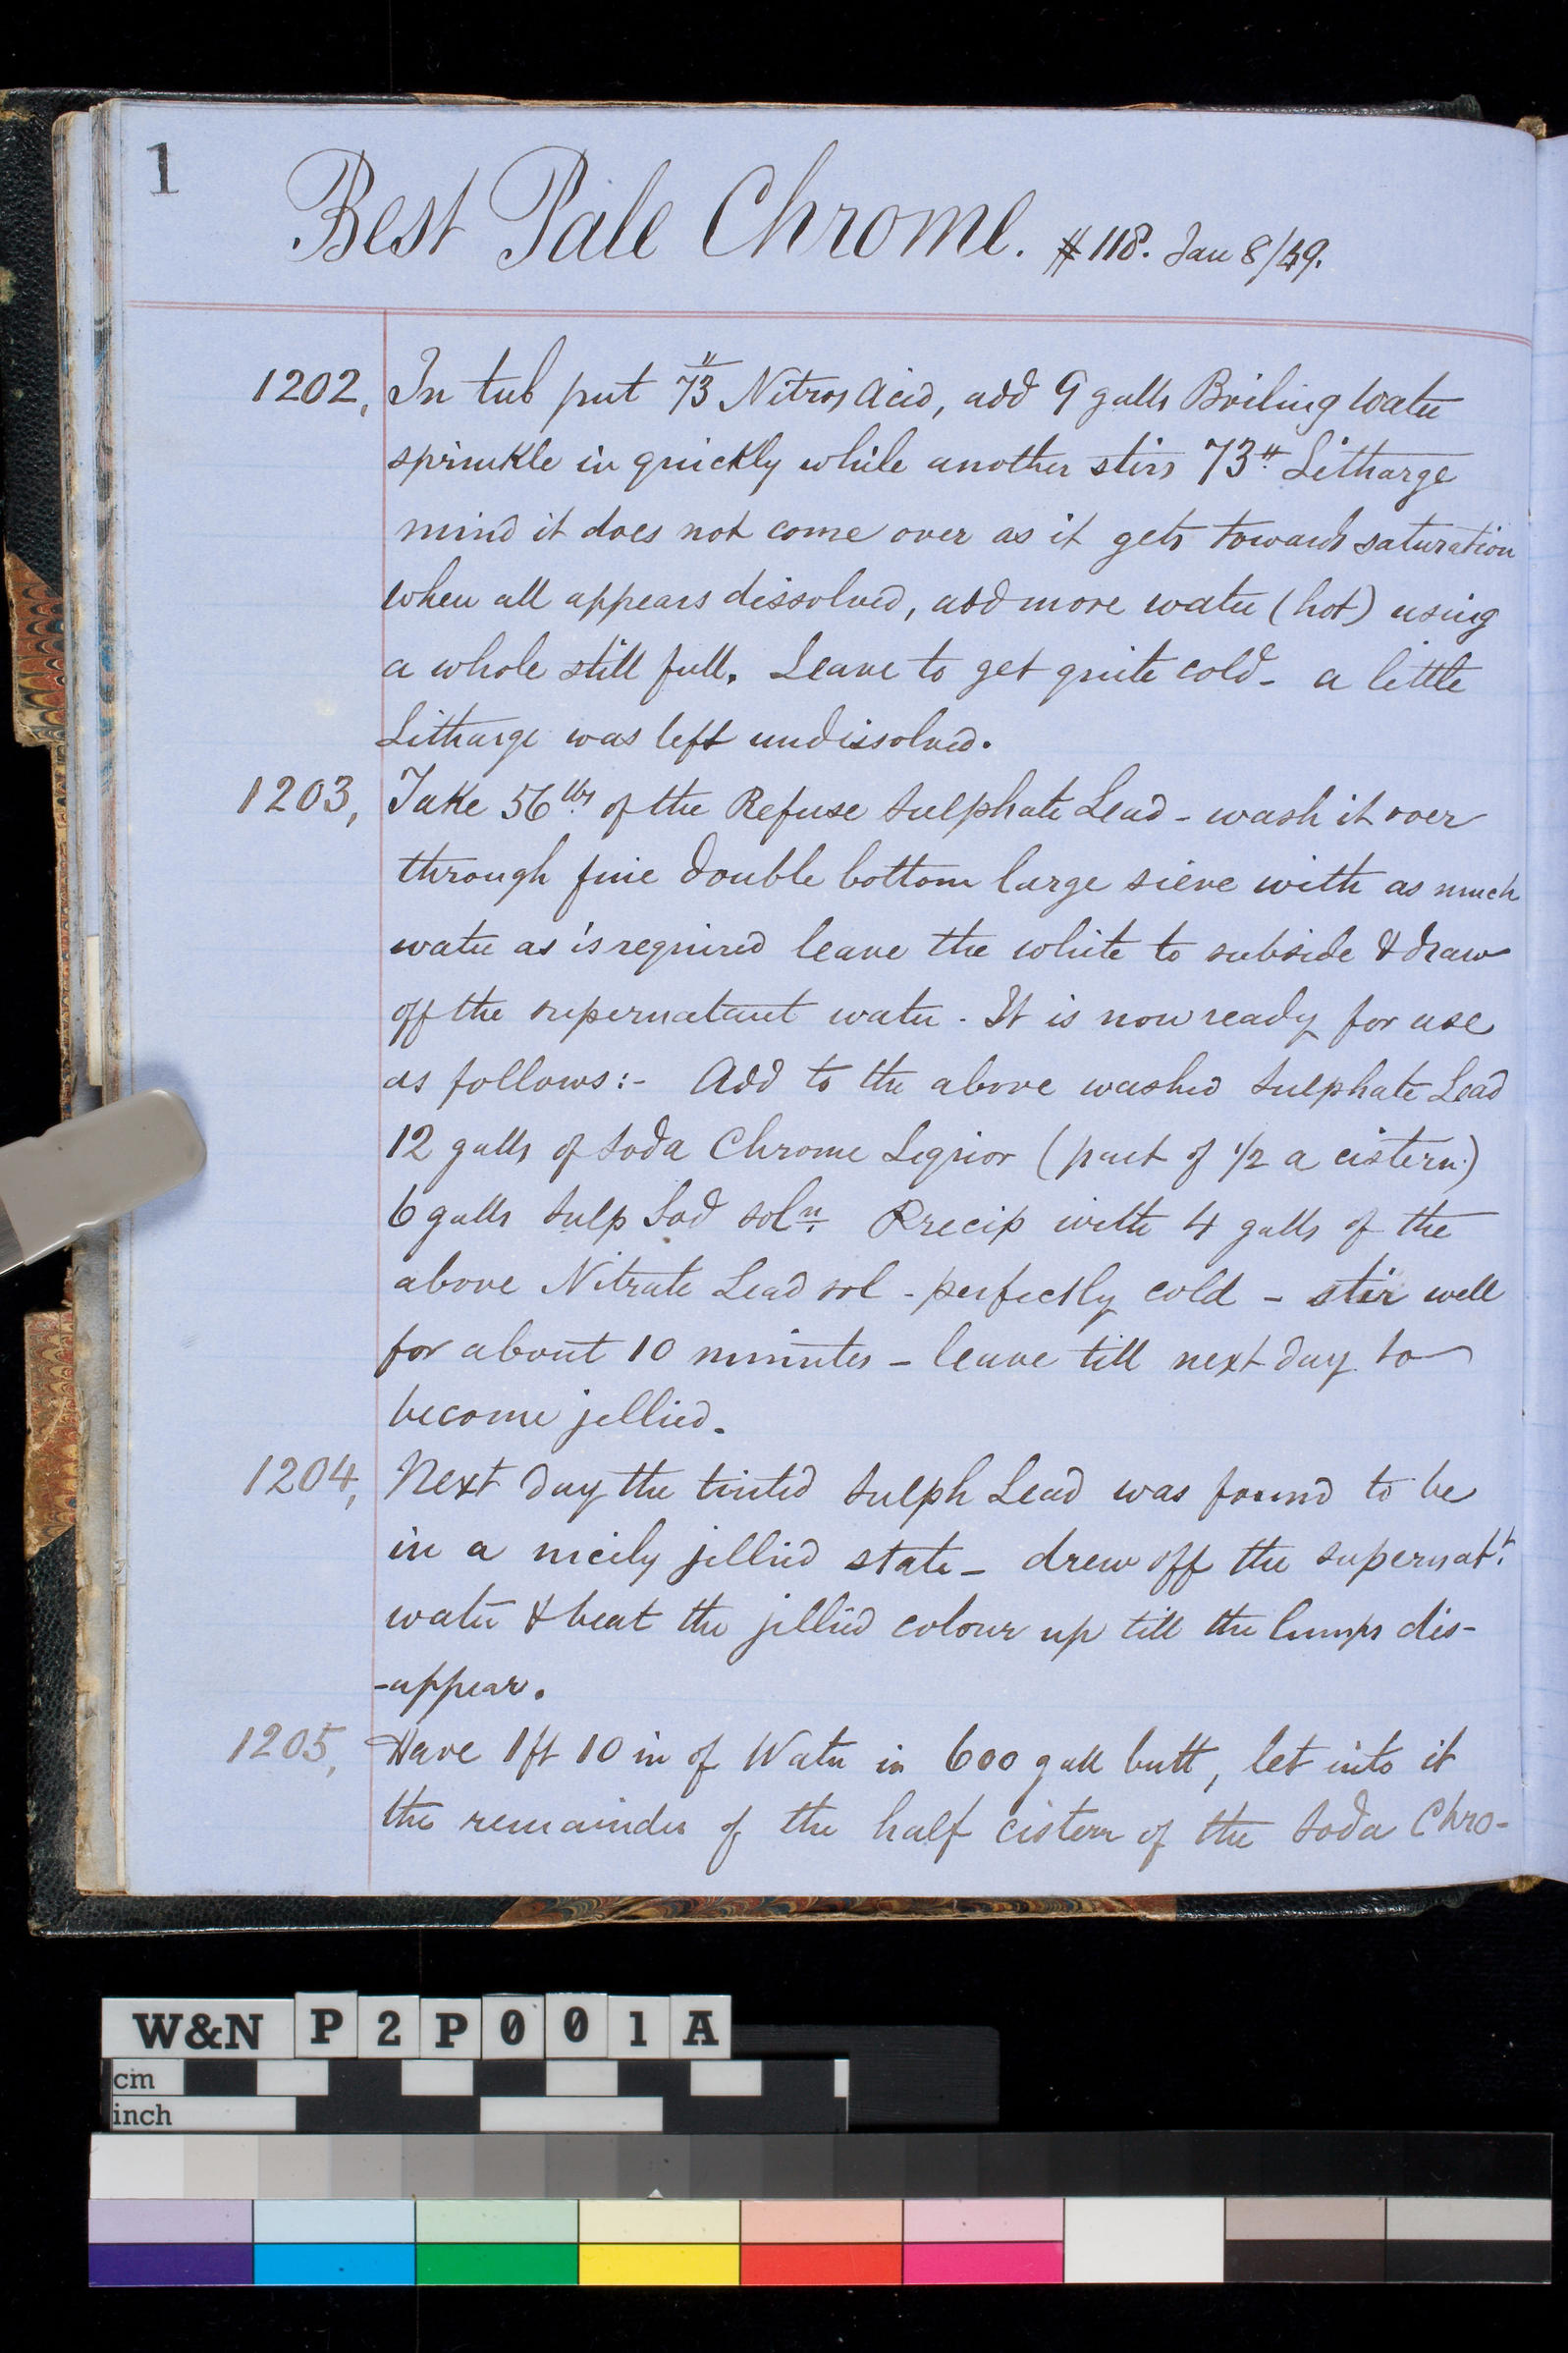 1
Best Pale Chrome. #118. Jan 8/49.
1202, In tub put 73# Nitros Acid, add 9 galls Boiling Water
sprinkle in quickly while another stirs 73# Litharge
mind it does not come over as it gets towards saturation
when all appears dissolved, add more water (hot) using
a whole still full. Leave to get quite cold - a little
Litharge was left undissolved.
1203, Take 56lbs of the Refuse Sulphate Lead - wash it over
through fine double bottom large sieve with as much
water as is required leave the white to subside & draw
off the supernatant water. It is now ready for use
as follows:- Add to the above washed Sulphate Lead
12 galls of Soda Chrome Liquior (part of 1/2 a cistern.)
6 galls Sulp Sod soln. Precip with 4 galls of the
above Nitrate Lead sol - perfectly cold - stir well
for about 10 minutes - leave till next day to
become jellied.
1204, Next day the tinted Sulph Lead was found to be
in a nicely jellied state - drew off the supernatt.
water & beat the jellied colour up till the lumps dis-
-appear.
1205, Have 1ft 10 in of Water in 600 gall butt, let into it
the remainder of the half cistern of the Soda Chro-
W&N P2P001A
cm
inch